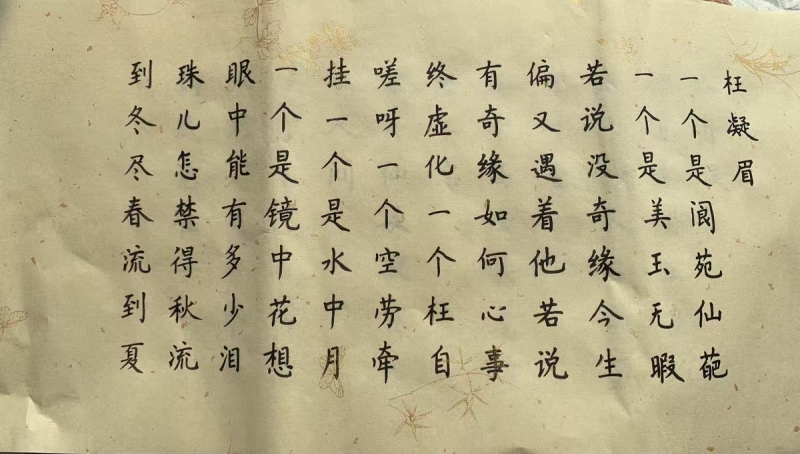 枉凝眉
一个是阆苑仙葩
一个是美玉无暇
若说没奇缘今生
偏又遇着他若说
有奇缘如何心事
终虚化一个枉自
嗟呀一个空劳牵
挂一个是水中月
一个是镜中花想
眼中能有多少泪
珠儿怎禁得秋流
到冬尽春流到夏